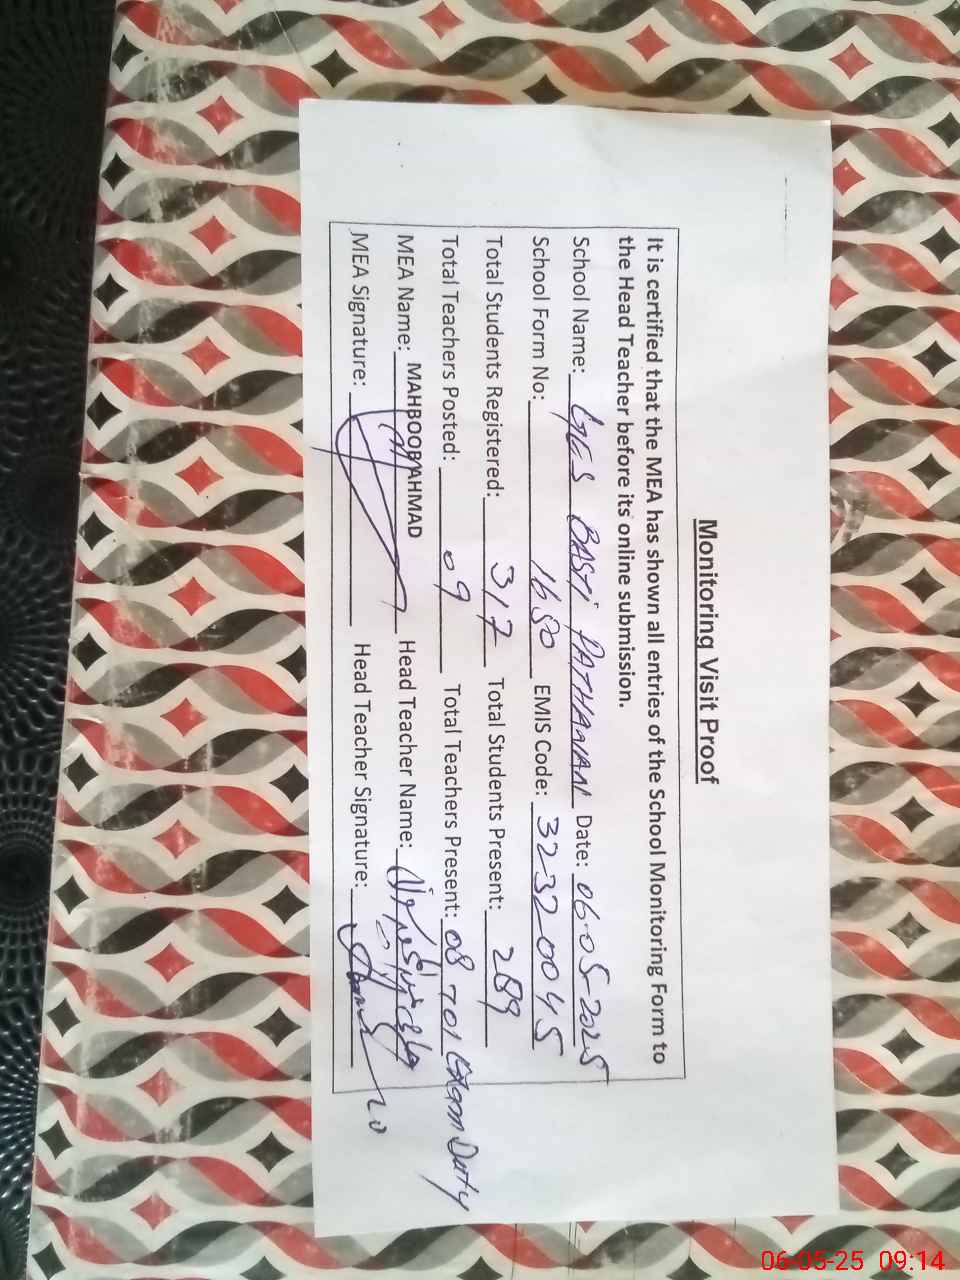 Monitoring Visit Proof
It is certified that the MEA has shown all entries of the School Monitoring Form to
the Head Teacher before its online submission.
School Name: GES BASTI PATHANAN Date: 06-05-2025
School Form No: 1650 EMIS Code: 32320045
Total Students Registered: 317 Total Students Present: 289
Total Teachers Posted: 09 Total Teachers Present: 08 + 01 Exam Duty
MEA Name: MAHBOOB AHMAD Head Teacher Name:
MEA Signature: Head Teacher Signature:
06-05-25 09:14